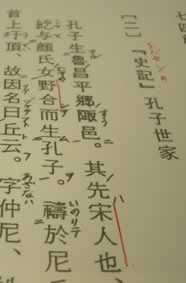 七四
〔二〕『史記』孔子世家
孔子生魯昌平郷陬邑。其先宋人也、
紇与顔氏女野合而生孔子。禱於尼
首上圩頂、故因名曰丘云。字仲尼、